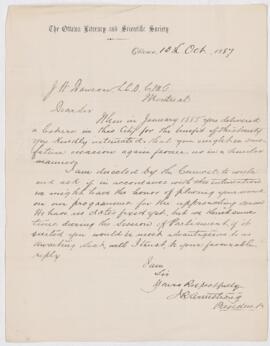 The Ottawa Literary and Scientific Society
Ottawa 12th Oct. 1887
J W Dawson LLD. CMG.
Montreal
Dear Sir
When in January 1885 you delivered
a Lecture in this City for the benefit of this Society
you kindly intimated that you might on some
future occasion again favour us in a similar
manner.
I am directed by the Council to write
and ask if in accordance with this intimation
we might have the honor of placing your name
on our programme for the approaching season
We have no dates fixed yet, but as
time during the Session of Parliament if it
suited you would be most advantageous to us
Awaiting what, will I trust, be your favorable
reply
I am
Sir
Yours Respectfully
J R Armstrong
President